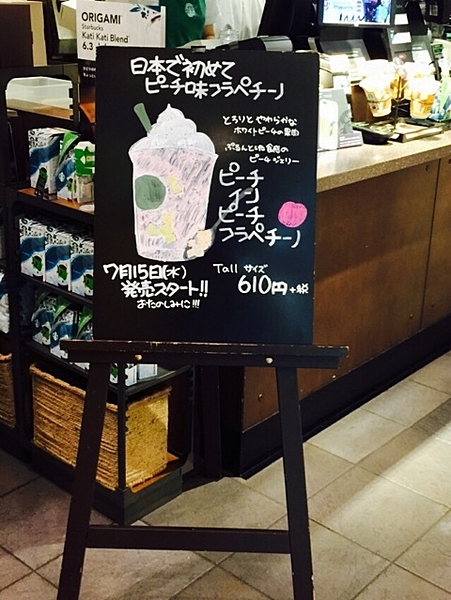 ORIGAMI
Starbucks
Kati Kati Blend
6.3
日本で初めて
ピーチ味フラペチーノ
とろりと やわらかな
ホワイトピーチの果肉
ぷるんとした食感の
ピーチジェリー
ピーチ
イン
ピーチ
フラペチーノ
7月15日(水)
発売スタート!!
おたのしみに!!!
Tall サイズ
610円+税